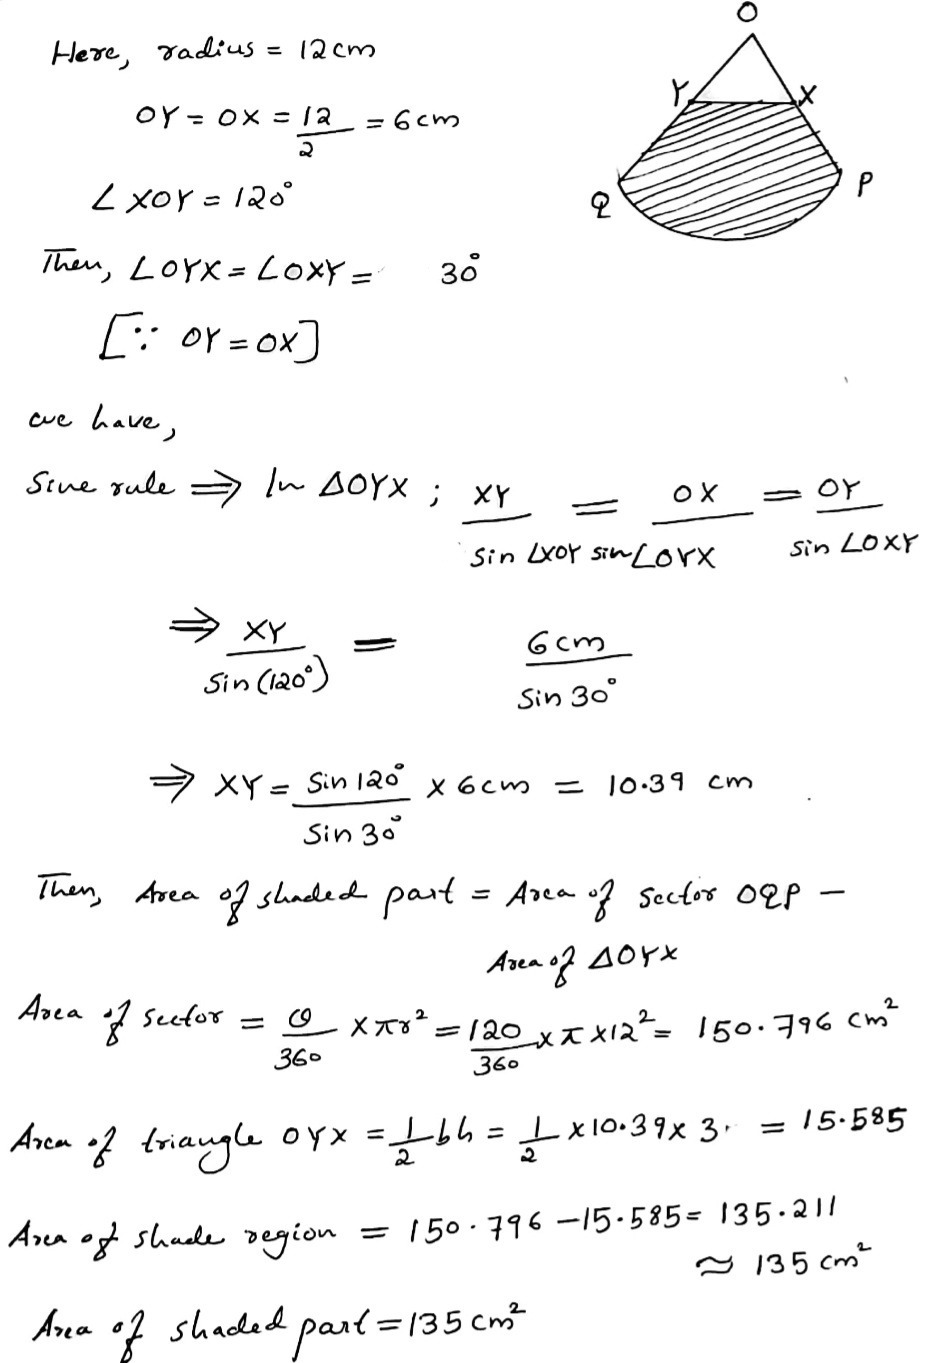 O
Here, radius = 12cm
Y X
OY = OX = 12/2 = 6cm
∠XOY = 120°
Q P
Then, ∠OYX = ∠OXY = 30°
[∵ OY = OX]
we have,
Sine rule ⇒ In ΔOYX ; XY/sin ∠XOY = OX/sin ∠OYX = OY/sin ∠OXY
⇒ XY/Sin(120°) = 6cm/Sin 30°
⇒ XY = Sin 120°/Sin 30° × 6cm = 10.39 cm
Then, Area of shaded part = Area of Sector OQP −
Area of ΔOYX
Area of sector = θ/360 × πr² = 120/360 × π × 12² = 150.796 cm²
Area of triangle OYX = 1/2 bh = 1/2 × 10.39 × 3. = 15.585
Area of shade region = 150.796 − 15.585 = 135.211
≈ 135 cm²
Area of shaded part = 135 cm²